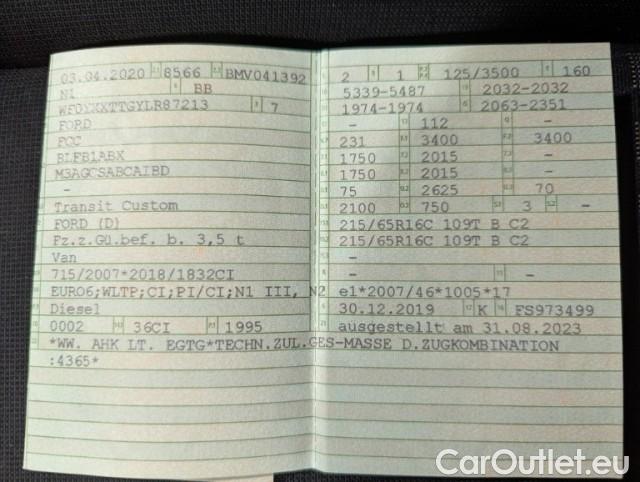 03.04.2020 8566 BMV041392
N1 BB
WF0YXXTTGYLR87213 7
FORD
FCC
BLFB1ABX
M3AGCSABCAIBD
-
Transit Custom
FORD (D)
Fz.z.Gü.bef. b. 3,5 t
Van
715/2007*2018/1832CI
EURO6;WLTP;CI;PI/CI;N1 III, N2
Diesel
0002 36CI 1995
*WW. AHK LT. EGTG*TECHN.ZUL.GES-MASSE D.ZUGKOMBINATION
:4365*
2 1 125/3500 160
5339-5487 2032-2032
1974-1974 2063-2351
- 112 -
231 3400 3400
1750 2015 -
1750 2015 -
75 2625 70
2100 750 3 -
215/65R16C 109T B C2
215/65R16C 109T B C2
-
- -
e1*2007/46*1005*17
30.12.2019 K FS973499
ausgestellt am 31.08.2023
CarOutlet.eu